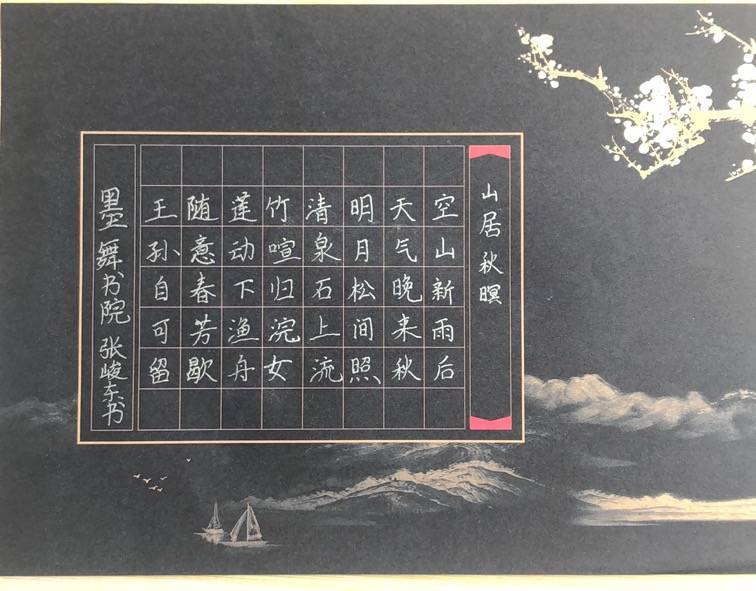 山居秋暝
空山新雨后
天气晚来秋
明月松间照
清泉石上流
竹喧归浣女
莲动下渔舟
随意春芳歇
王孙自可留
墨舞书院张峻东书